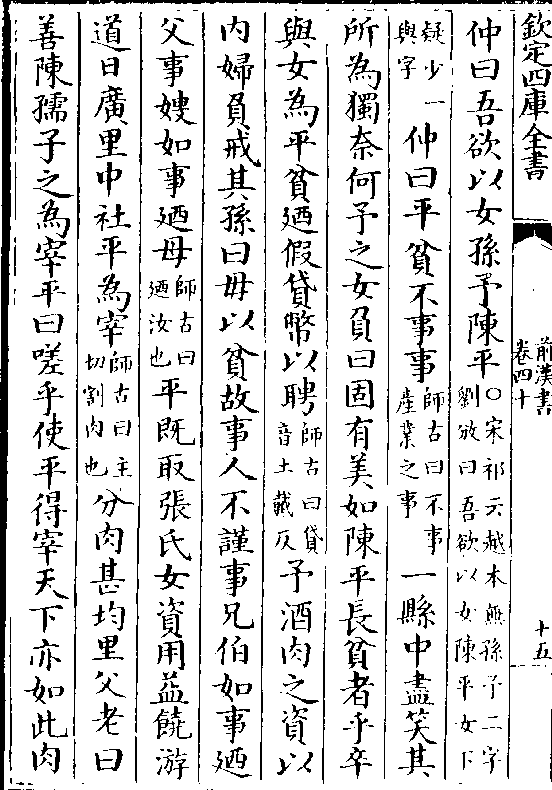 欽定四庫全書
前漢書
卷四十
十五
仲曰吾欲以女孫予陳平○宋祁云越本無孫予二字劉攽曰吾欲以女陳平女下
疑少一與字仲曰平貧不事事師古曰不事產業之事一縣中盡笑其
所為獨奈何予之女負曰固有美如陳平長貧者乎卒
與女為平貧迺假貸幣以聘師古曰貸音土戴反予酒肉之資以
内婦負戒其孫曰毋以貧故事人不謹事兄伯如事迺
父事嫂如事迺母師古曰迺汝也平既取張氏女資用益饒游
道日廣里中社平為宰師古曰主切割肉也分肉甚均里父老曰
善陳孺子之為宰平曰嗟乎使平得宰天下亦如此肉